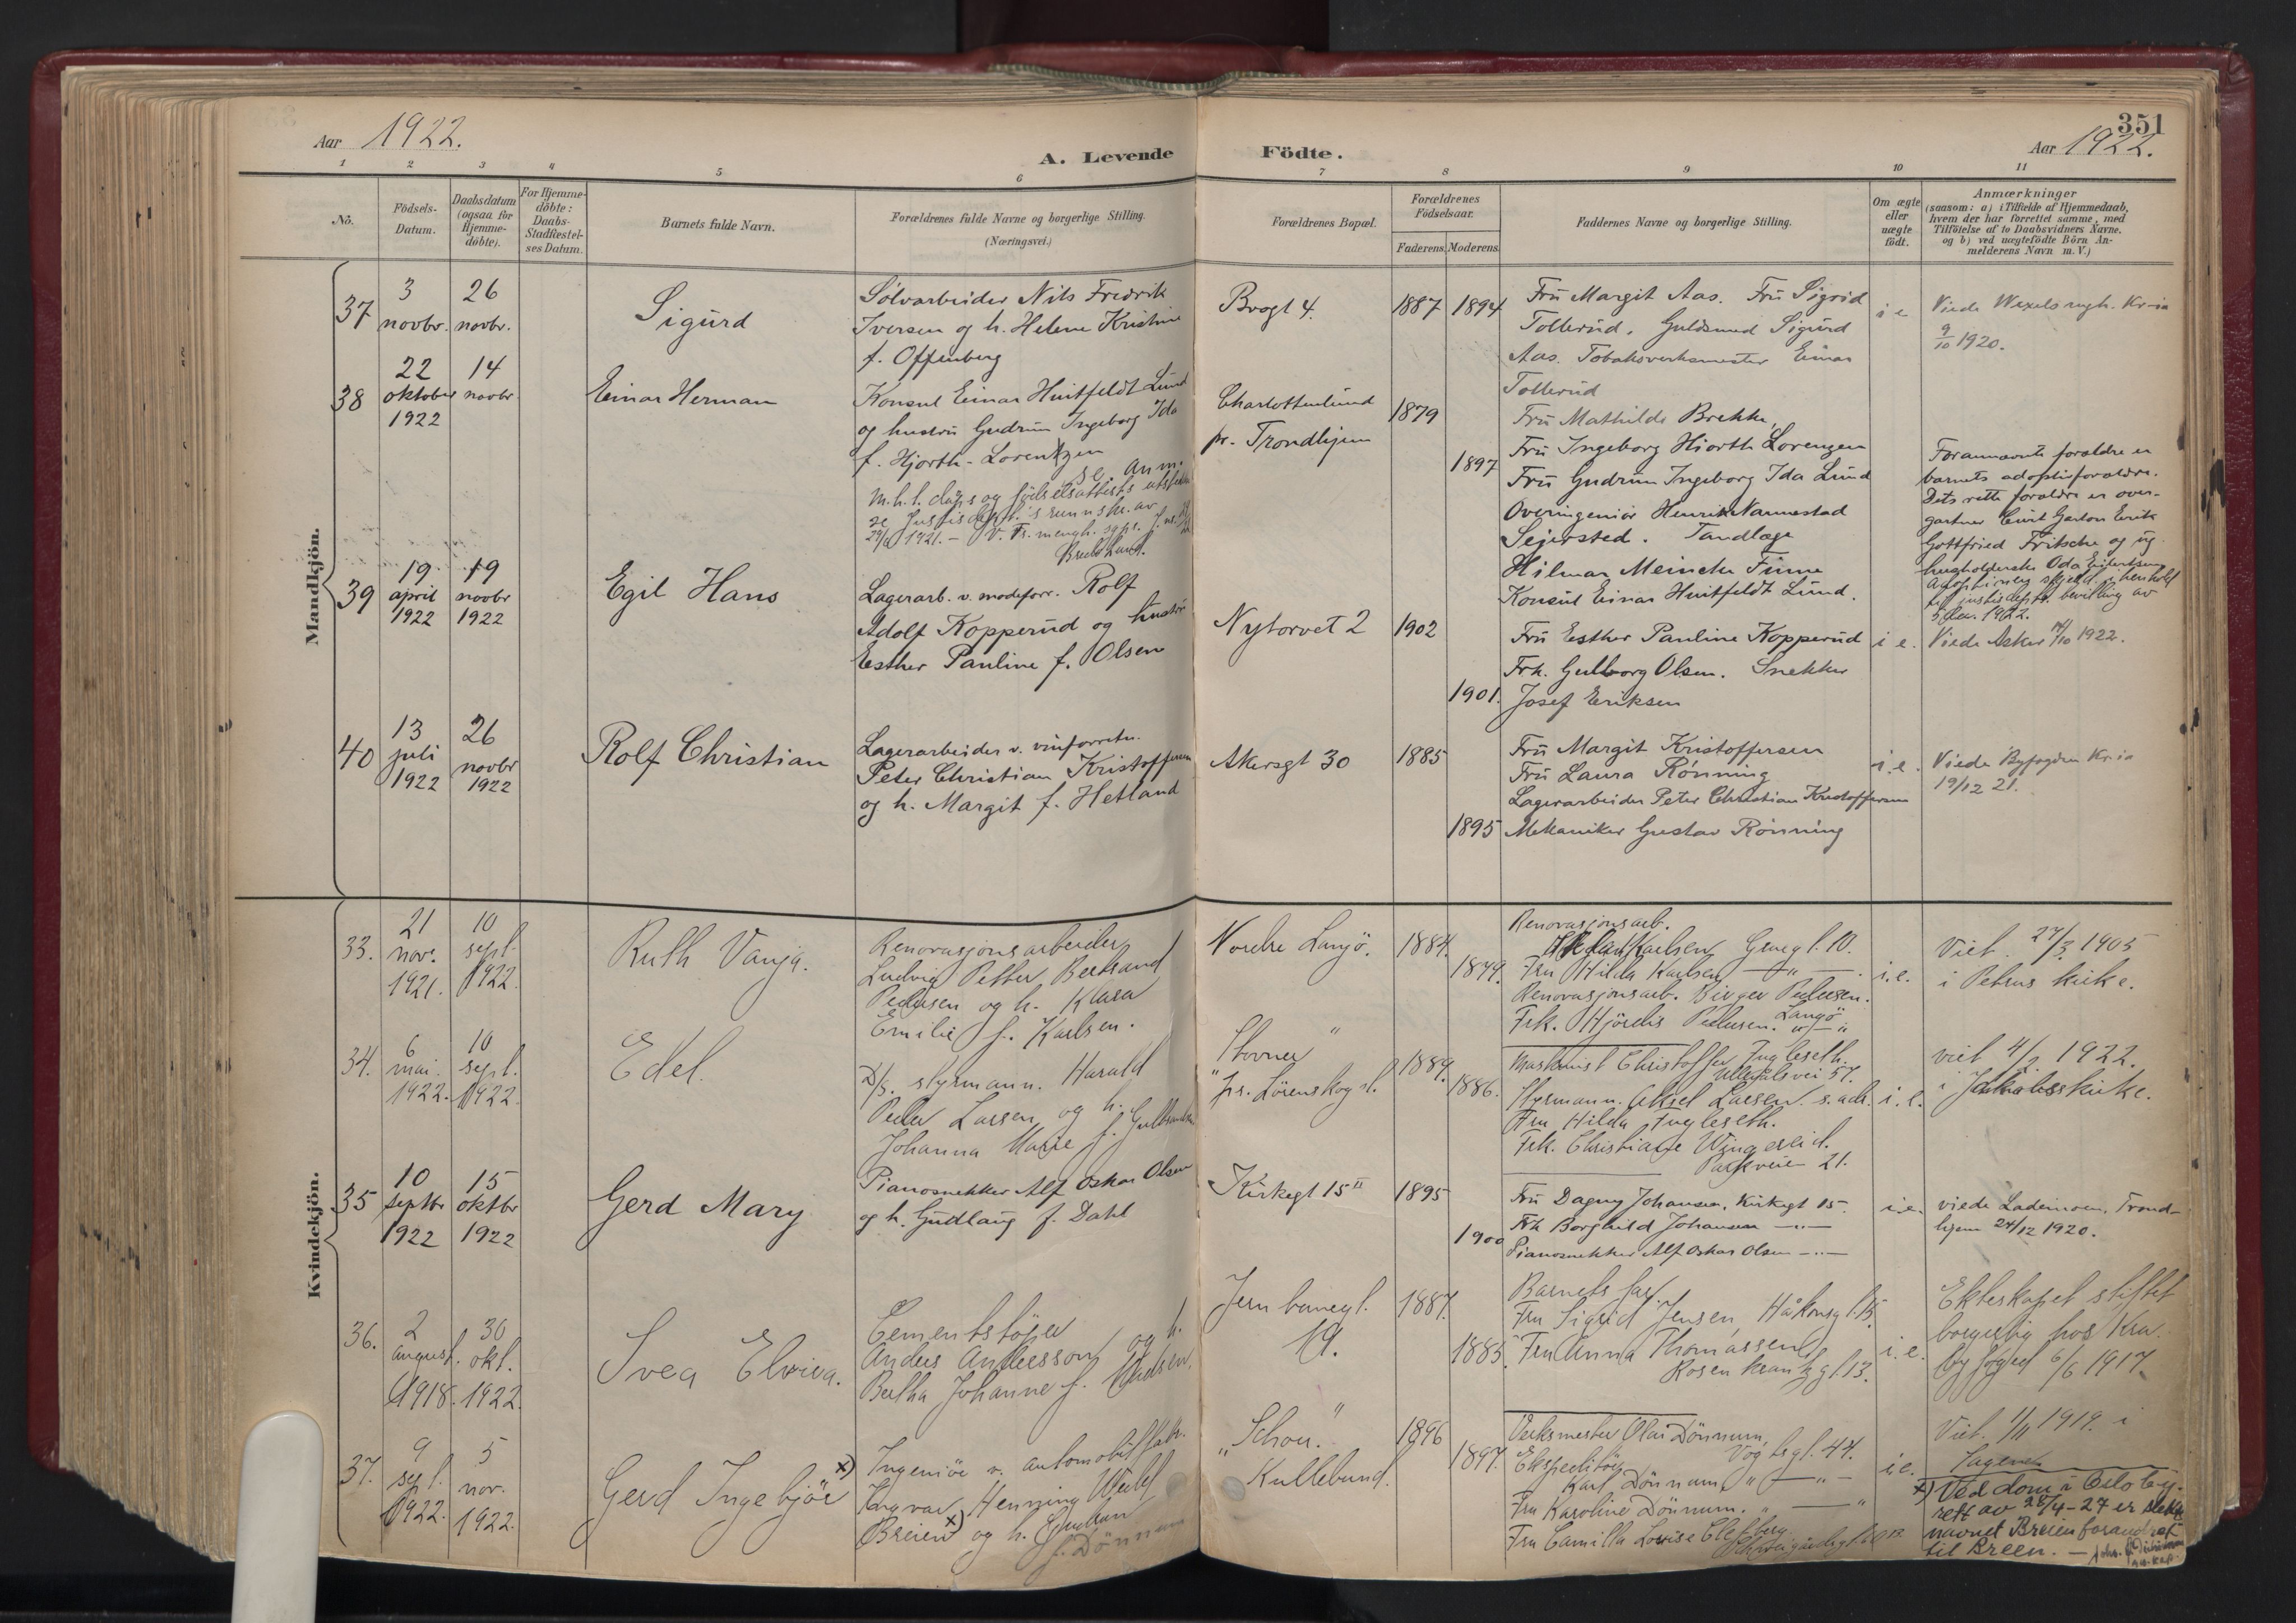 351
Aar 1922.
A. Levende Födte.
Aar 1922.
1 2 3 4 5 6 7 8 9 10 11
Nô.
Födsels-
Datum.
Daabsdatum
(ogsaa for
Hjemme-
döbte).
For Hjemme-
döbte:
Daabs-
Stadfæstel-
ses Datum.
Barnets fulde Navn.
Forældrenes fulde Navne og borgerlige Stilling.
(Næringsvei.)
Forældrenes Bopæl.
Forældrenes
Födselsaar.
Faderens. Moderens.
Faddernes Navne og borgerlige Stilling.
Om ægte
eller
uægte
födt.
Anmærkninger
(saasom: a) i Tilfælde af Hjemmedaab,
hvem der har forrettet samme, med
Tilföielse af to Daabsvidners Navne.
og b) ved uægtefödte Börn An-
melderens Navn m. V.)
Mandkjön.
37
3
novbr.
26
novbr.
Sigurd
Sølvarbeider Nils Fredrik
Iversen og h. Helene Kristine
f. Offenberg
Brogt 4.
1887 1894
Fru Margit Aas. Fru Sigrid
Tollerud. Guldsmed Sigurd
Aas. Tobaksverksmester Einar
Tollerud
i e
Viede Wexels mgh. Kr-ia
9/10 1920.
38
22
oktober
1922
14
novbr
Einar Herman
Konsul Einar Huitfeldt Lund
og hustru Gudrun Ingeborg Ida
f. Hjorth-Lorentzen
se anm.
m.h.t. dåps og fødselsattests
se Justisdept.'s av
29/6 1921.
Charlottenlund
pr. Trondhjem
1879
1897
Fru Mathilde Brekke,
Fru Ingeborg Hiorth Lorenzen
Fru Gudrun Ingeborg Ida Lund
Overingeniør Henrik Nannestad
Sejersted. Tandlæge
Hilmar Meincke Finne
Konsul Einar Huitfeldt Lund.
Forannævnte forældre er
barnets adoptivforældre.
Dets rette forældre er over-
gartner Curt Gaston Erik
Gottfried Fritsche og ug.
husholderske Oda Eilertsen
i henhold
til justisdepts. bevilling av
1922.
39
19
april
1922
19
novbr
1922
Egil Hans
Lagerarb. v. modeforr. Rolf
Adolf Kopperud og hustru
Esther Pauline f. Olsen
Nytorvet 2
1902
1901.
Fru Esther Pauline Kopperud
Frk. Gulborg Olsen. Snekker
Josef Eriksen
i e.
Viede Asker 14/10 1922.
40
13
juli
1922
26
novbr
1922
Rolf Christian
Lagerarbeider v. vinforretn.
Peter Christian Kristoffersen
og h. Margit f. Hetland
Akersgt 30
1885
1895
Fru Margit Kristoffersen
Fru Laura Rönning
Lagerarbeider Peter Christian Kristoffersen
Mekaniker Gustav Rönning
i.e.
Viede Byfogden Kr.ia
19/12 21.
Kvindekjön.
33.
21
nov.
1921.
10
sept.
1922.
Ruth Vanja.
Renovasjonsarbeider
Ludvig Petter Bertrand
Pedersen og h. Klara
Emilie f. Karlsen.
Nordre Langö.
1884.
1879.
Renovasjonsarb.
Karlsen, 10.
Fru Hilda Karlsen —"—.
Renovasjonsarb. Birger Pedersen.
Langö
Frk. Hjördis Pedersen. "—"
i.e.
Viet 27/3 1905
i Petrus kirke.
34.
6
mai.
1922.
10
sept.
1922.
Edel.
D/s. styrmann. Harald
Peder Larsen og h.
Johanna Marie f.
"Stovner"
pr. Lörenskog st.
1889.
1886.
Maskinist Christoffer Fugleseth.
Ullevålsvei 57.
Styrmann. Aksel Larsen s. adr.
Fru Hilda Fugleseth.
Frk. Christiane
Parkveien 21.
i.e.
viet 4/2 1922.
i Jakobskirke.
35
10
septbr
1922
15
oktbr
1922
Gerd Mary
Pianosnekker Alf Oskar Olsen
og h. Gudlaug f. Dahl
Kirkegt 15 II
1895
1900
Fru Dagny Johansen, Kirkegt 15.
Frk Borghild Johansen —"—
Pianosnekker Alf Oskar Olsen —"—
i.e.
viede Lademoen, Trond-
hjem 24/12 1920.
36.
2
august.
1918.
30
okt.
1922.
Svea Elvira.
Cementstøper
Anders Andersson og h.
Bertha Johanne f. Madsen.
Jernbanegt.
19.
1887.
1885.
Barnets far.
Fru Sigrid Jensen, Håkonsgt. 15.
Fru Anna Thomassen
Rosenkrantzgt. 13.
i.e.
Ekteskapet stiftet
borgerlig hos Kra.
byfoged 6/6 1917.
37.
9
sept.
1922.
5
nov.
1922.
Gerd Ingebjör
x) Ingeniör v. automobilfabr.
Ingvar Henning
Breien x) og h. Gudrun
f. Dönnum
"Schou."
Kullebund.
1896
1897.
Verksmester Olai Dönnum,
Vogtsgt. 44.
Ekspeditör
Karl Dönnum "—"—
Fru Karoline Dönnum. "—"
Fru Camilla Lovise
i.e.
Viet. 1/11 1919. i
Sagene
x) Ved dom i Oslo by-
rett av 28/4-27 er slekts
navnet Breien forandret
til Breen. —